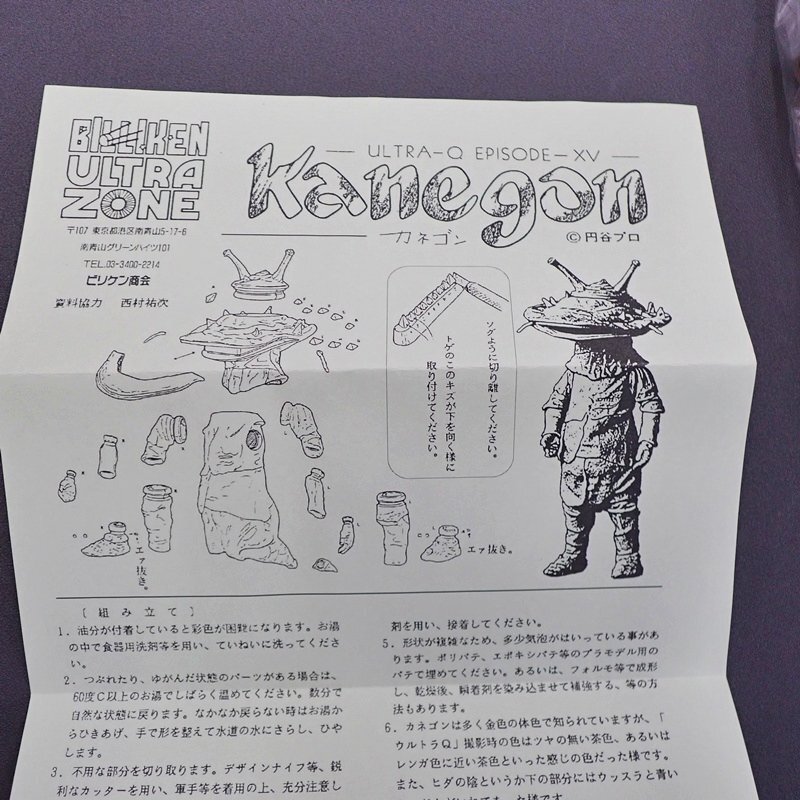 BILLIKEN
ULTRA
ZONE
〒107 東京都港区南青山5-17-6
南青山グリーンハイツ101
TEL.03-3400-2214
ビリケン商会
資料協力 西村祐次
ULTRA-Q EPISODE-XV
Kanegon
カネゴン
©円谷プロ
ソグように切り離してください。
トゲのこのキズが下を向く様に
取り付けてください。
エア抜き。
エア抜き。
〔組み立て〕
1．油分が付着していると彩色が困難になります。お湯
の中で食器用洗剤等を用い、ていねいに洗ってくださ
い。
2．つぶれたり、ゆがんだ状態のパーツがある場合は、
60度C以上のお湯でしばらく温めてください。数分で
自然な状態に戻ります。なかなか戻らない時はお湯か
らひきあげ、手で形を整えて水道の水にさらし、ひや
します。
3．不用な部分を切り取ります。デザインナイフ等、鋭
利なカッターを用い、軍手等を着用の上、充分注意し
剤を用い、接着してください。
5．形状が複雑なため、多少気泡がはいっている事があ
ります。ポリパテ、エポキシパテ等のプラモデル用の
パテで埋めてください。あるいは、フォルモ等で成形
し、乾燥後、瞬着剤を染み込ませて補強する、等の方
法もあります。
6．カネゴンは多く金色の体色で知られていますが、「
ウルトラQ」撮影時の色はツヤの無い茶色、あるいは
レンガ色に近い茶色といった感じの色だった様です。
また、ヒダの陰というか下の部分にはウッスラと青い